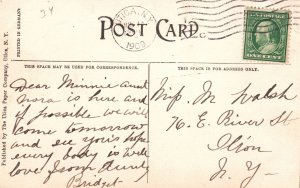 34
UTICA, N.Y.
1909
POST CARD.
THIS SPACE MAY BE USED FOR CORRESPONDENCE.
THIS SPACE IS FOR ADDRESS ONLY.
PRINTED IN GERMANY.
Published by The Utica Paper Company, Utica, N. Y.
ONE CENT
Dear Minnie aunt
Nora is here and
if possible we will
come tomorrow
and see you's hope
every body is well
love from Aunty
Bridget
Miss M Walsh
76. E. River St
Ilion
N- Y-